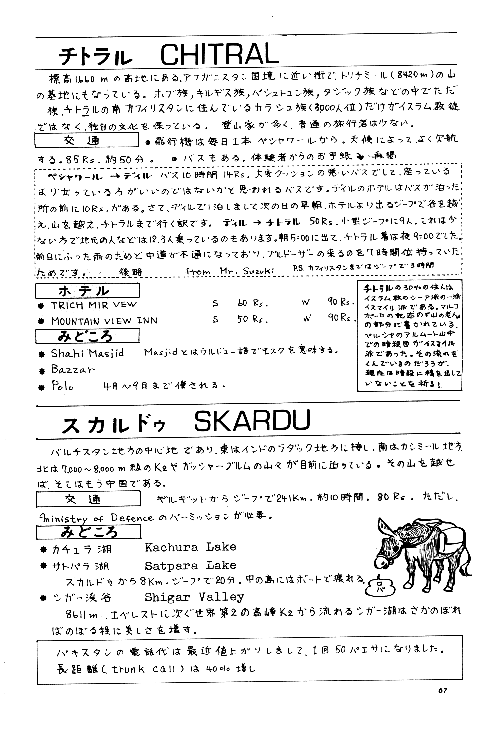 チトラル CHITRAL
標高1660mの高地にある、アフガニスタン国境に近い街で、トリチミール(8420m)の山
の基地にもなっている。ホブ族,キルギス族,パシュトュン族,タジック族などの中でただ一
族、チトラルの南カフィリスタンに住んでいるカラシュ族(3000人位)だけがイスラム教徒
ではなく、独自の文化を保っている。登山家が多く、普通の旅行者は少ない。
交通 ●飛行機は毎日1本ペシャワールから。天候によってよく欠航
する。85Rs. 約50分。 ●バスもある。体験者からのお手紙
ペシャワール→ディル バス10時間14Rs. 大変クッションの悪いバスでして、座っている
より立っているほうがいいのではないかと思われるバスです。ディルのホテルはバスが泊った
所の前に10Rs.がある。さて、ディルで1泊しまして次の日の早朝、ホテルより出るジープで谷を越
え、山を越え、チトラルまで行く訳です。ディル→チトラル 50Rs. 小型ジープに9人、これは少
ない方で地元の人などは12,3人乗っているのもあります。朝5:00に出て、チトラル着は夜9:00でした。
前日にふった雨のためと中道が不通になっており、ブルドーザーの来るのを7時間位待っていた
ためです。 後略 from Mr. Suzuki P.S. カフィリスタンまではジープで3時間
ホテル
● TRICH MIR VIEW S 60 Rs. W 90 Rs.
● MOUNTAIN VIEW INN S 50 Rs. W 90 Rs.
みどころ
● Shahi Masjid Masjidとはウルドゥー語でモスクを意味する。
● Bazzar
● Polo 4月〜9月まで催される。
チトラルの30%の住人は
イスラム教のシーア派の一派
イスマイル派である。マルコ
ポーロの
の部分に書かれている、
ペルシャのアラムート山中
での暗殺団がイスマイル
派であった。その流れを
くんでいるのだろうが、
現在は暗殺に精を出して
いないことを祈る!
スカルドゥ SKARDU
バルチスタン地方の中心地であり、東はインドのラダック地方に接し、南はカシミール地方
北は7,000〜8,000m級のK2やガッシャーブルムの山々が目前に迫っている。その山を越せ
ば、そこはもう中国である。
交通 ギルギットからジープで241Km. 約10時間。80Rs. ただし、
Ministry of Defenceのパーミッションが必要。
みどころ
● カチュラ湖 Kachura Lake
● サトパラ湖 Satpara Lake
スカルドゥから8Km. ジープで20分。中の島にはボートで渡れる。
● シガー渓谷 Shigar Valley
8611m. エベレストに次ぐ世界第2の高峰K2から流れるシガー湖はさかのぼれ
ばのぼる程に美しさを増す。
パキスタンの電話代は最近値上がりしまして、1回50パエサになりました。
長距離(trunk call)は40%増し
67